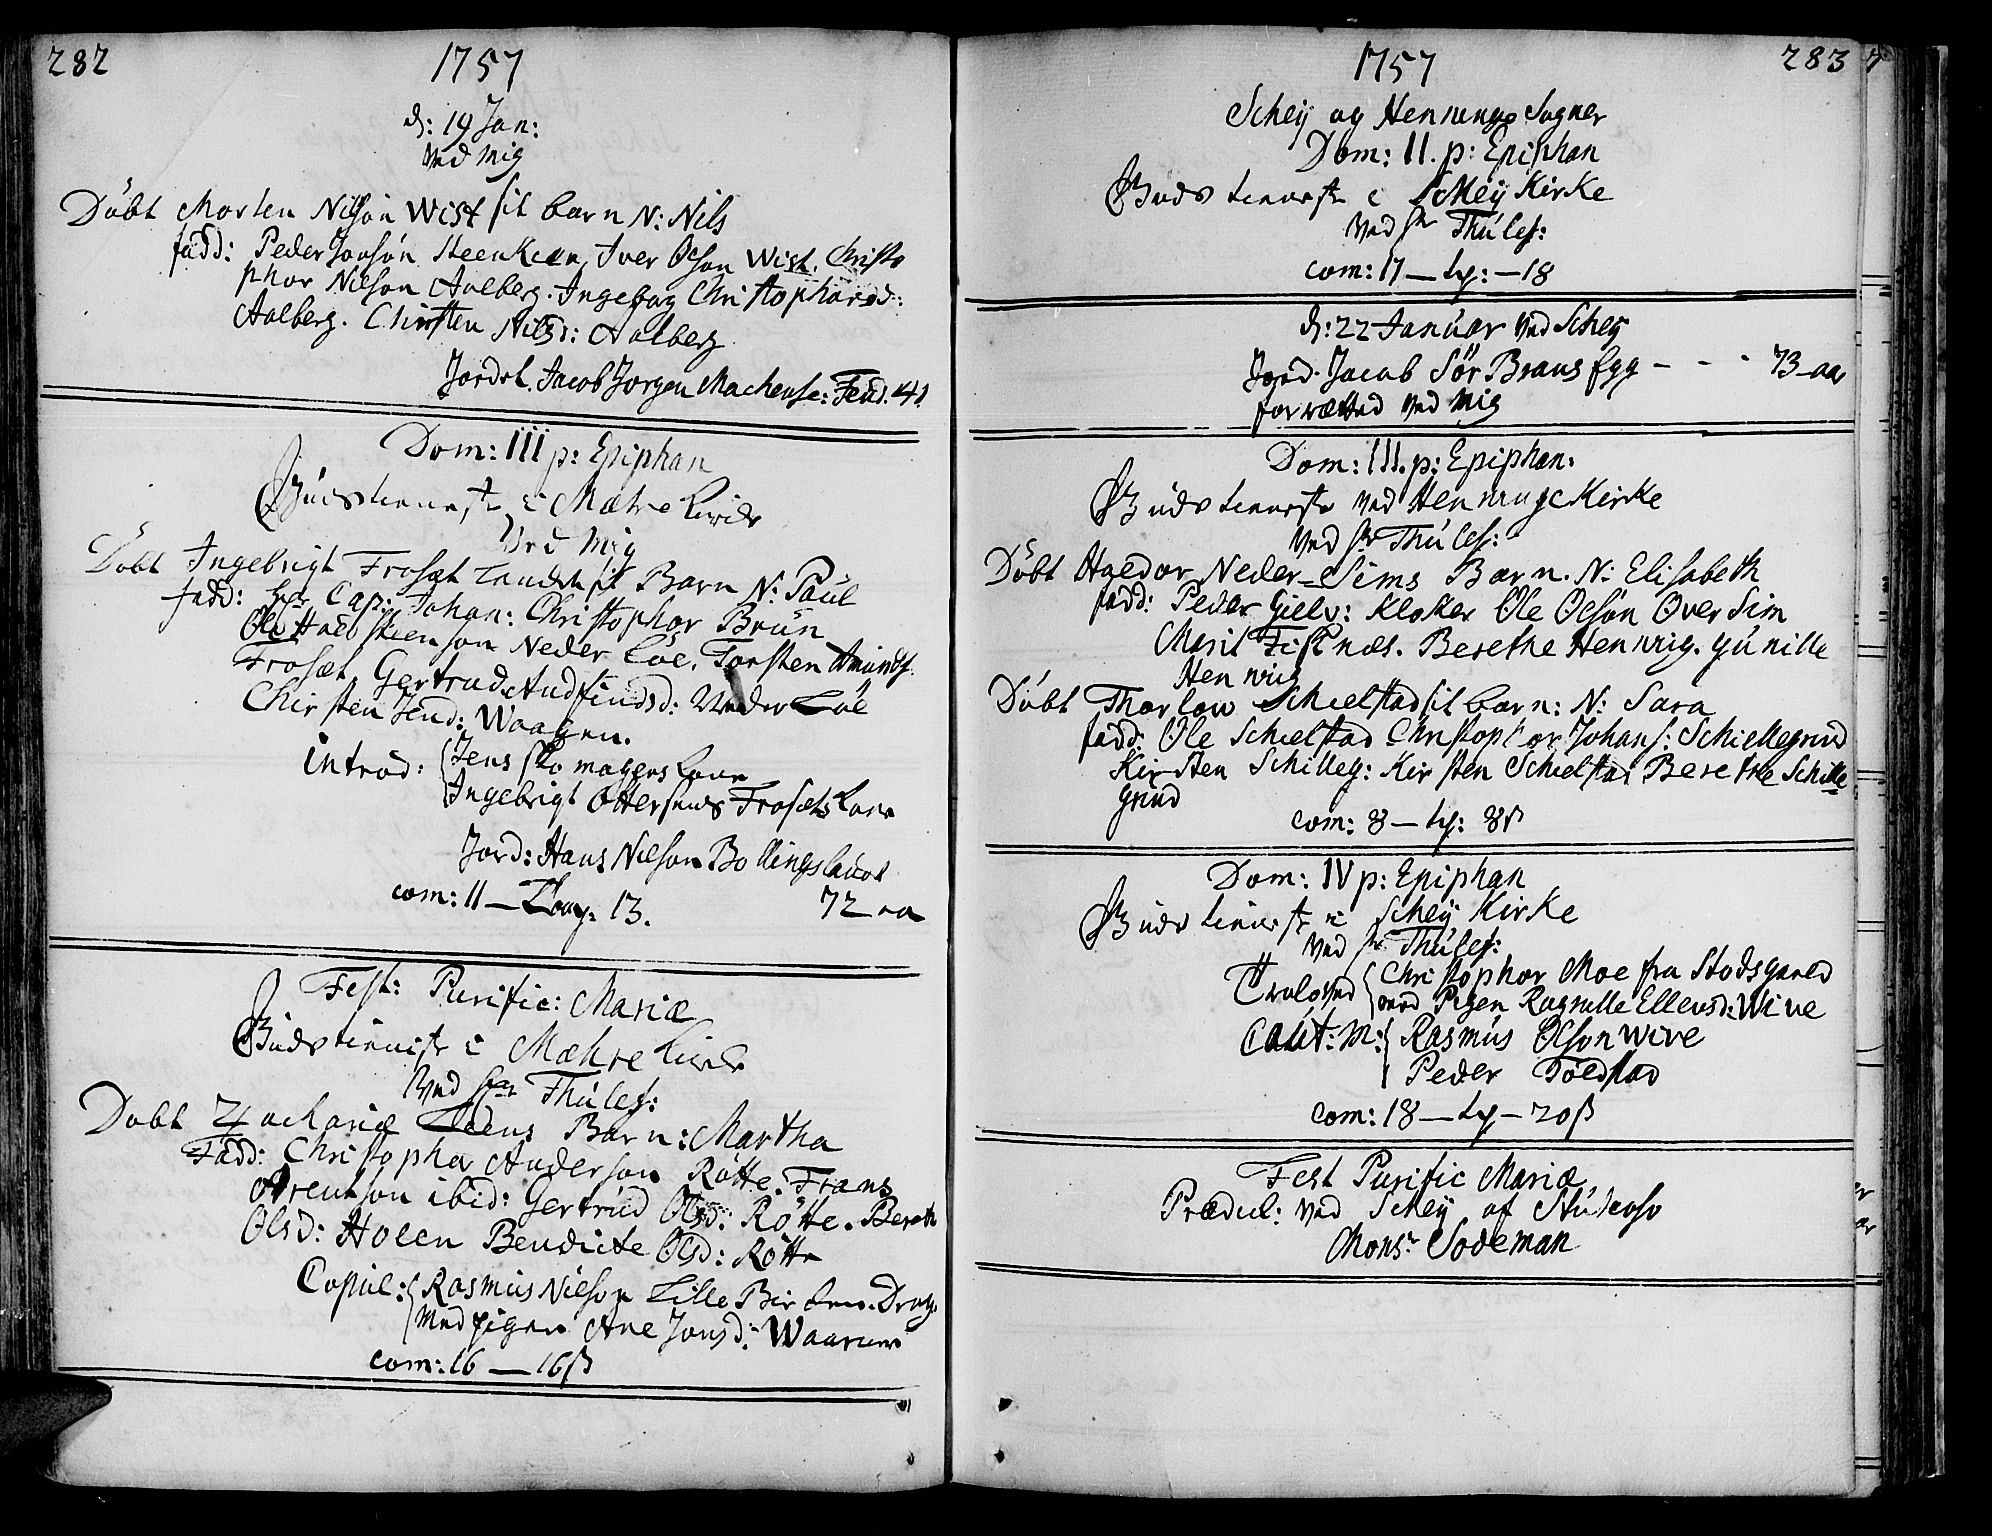 282
1757
d: 19 Jan:
ved mig
Döbt Morten Nilsön Wist sit barn N: Nils
fadd: Peder Jonsön Steenkier, Iver Olson Wist. Christo
phor Nilson Aalberg. Ingebor Christophersd:
Aalberg. Chirsten Nilsd: Aalberg
Jordet. Jacob Jorgen Machense:
Dom: III p: Epiphan
Gudstienest i Mæhre Kircke
Ved Mig
Döbt Ingebrigt Frosæt sit Barn N: Paul
fadd: Hr Cap: Johan: Christophor Brün
Ole Halsteenson Neder Löe. Torsten Amunds.
Frosæt Gertrud Audfindsd: Neder Löe
Chirsten Jend: Waagen.
introd: Jens sko magers kone
Ingebrigt Ottersens Frosæts kone
Jord: Hans Nilson Bollingslauet
com: 11 — 13. 72
Fest: Purific: Mariæ
Gudstienist i Mæhre Kircke
Ved Thules:
Döbt Zacharie Barn: Martha
Fadd: Christopher Anderson Rötte. Frans
Arentson ibid: Gertrud Olsd: Rötte. Bereth
Olsd: Holen Bendicte Olsd: Rötte
Copul: Rasmus Nilson Lille
Med pigen Ane Jonsd: Waarum
com: 16 — 16ß
1757
283
Scheij og Hennings Sogner
Dom: II. p: Epiphan
Guds tieneste i Scheij Kirke
Ved Hr Thules:
com: 17 — — 18
d: 22 Januar ved Scheij
Jord. Jacob Sör Brans Egg - - - 73 aar
forrætted ved Mig
Dom: III. p: Epiphan:
Guds tieneste ved Henninge Kirke
Ved Hr Thules:
Döbt Haldor Neder-Sims Barn. N: Elisabeth
fadd: Peder Gielv: Kloker Ole Olsön Over Sim
Marit Fisknæs. Berethe Henning. Gunille
Henning
Döbt Thorlow Schielstad sit barn: N: Sara
fadd: Ole Schielstad Christophor Johans: Schillegrind
Kirsten Schilleg: Kirsten Schielstad Berethe Schille
grind
com: 8 — 8ß
Dom: IV p: Epiphan
Guds tienest i Scheij Kirke
ved Hr Thules:
Troloved Christophor Moe fra Stodsgaard
med Pigen Ragnille Ellensd: Wive
Caut: M: Rasmus Olson Wive
Peder Foldstad
com: 18 — — 20ß
Fest Purific Mariæ
Prædik: ved Scheij af Studioso
Monsr Sodeman